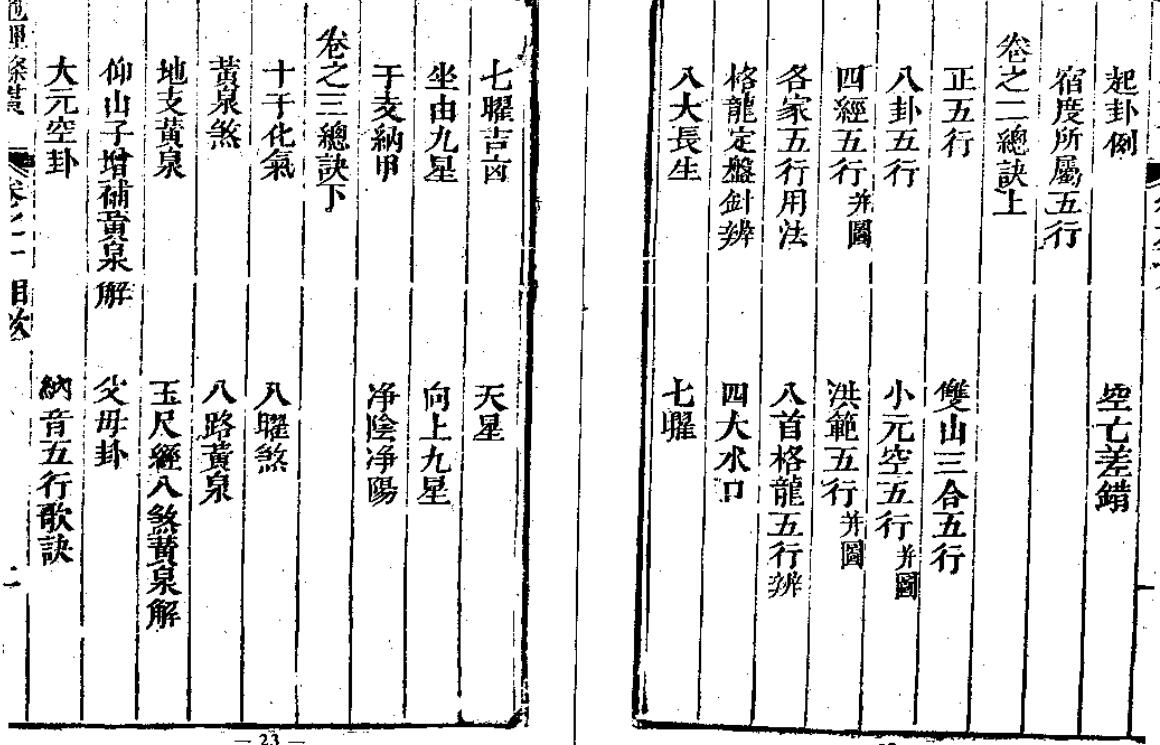 起卦例　空亡差錯
宿度所屬五行
卷之二總訣上
正五行　雙山三合五行
八卦五行　小元空五行并圖
四經五行并圖　洪範五行并圖
各家五行用法　八首格龍五行辨
格龍定盤針辨　四大水口
八大長生　七曜
七曜吉凶　天星
坐由九星　向上九星
干支納甲　净陰净陽
卷之三總訣下
十干化氣　八曜煞
黃泉煞　八路黃泉
地支黃泉　玉尺經八煞黃泉解
仰山子增補黃泉解　父母卦
大元空卦　納音五行歌訣
地理條貫　卷之一　目次
— 23 —